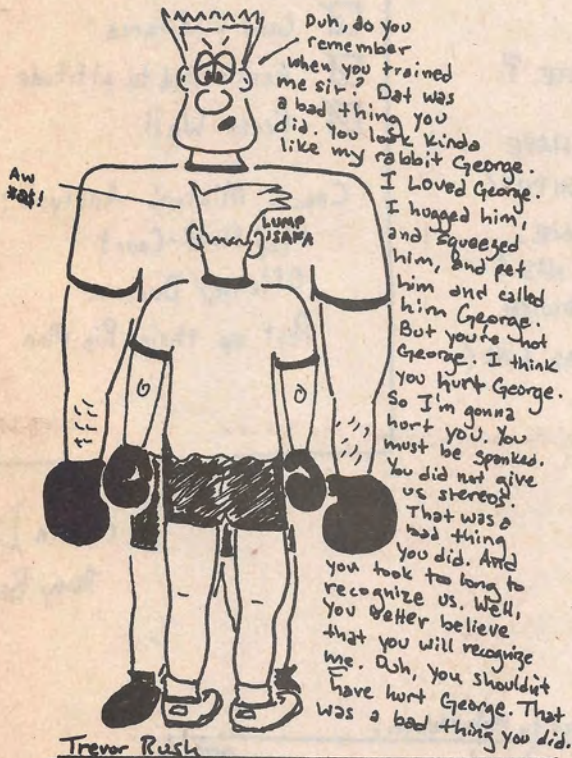 Duh, do you
remember
when you trained
me sir? Dat was
a bad thing you
did. You look kinda
like my rabbit George.
I Loved George.
I hugged him,
and squeezed
him, and pet
him and called
him George.
But you're not
George. I think
you hurt George.
So I'm gonna
hurt you. You
must be spanked.
You did not give
us stereos.
That was a
bad thing
you did. And
you took too long to
recognize us. Well,
you better believe
that you will recognize
me. Duh, you shouldn't
have hurt George. That
was a bad thing you did.
Aw
*@$!
LUMP
ISAKA
Trevor Rush